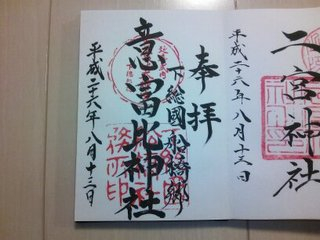 二宮神社
平成二十六年八月十三日
奉拝
下総國船橋郷
意富比神社
平成二十六年八月十三日